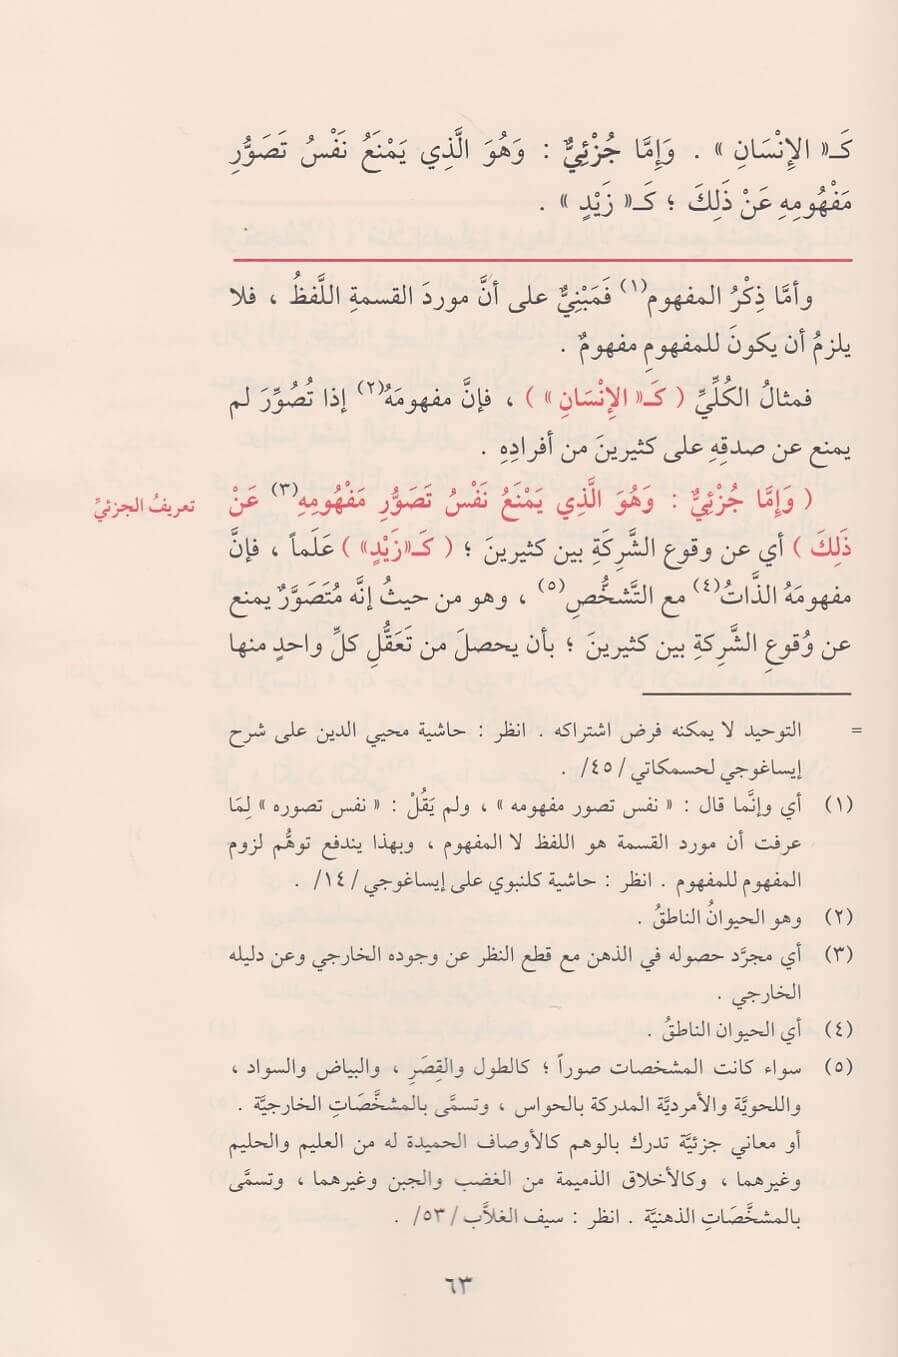 كَـ« الإِنْسَانِ » . وَإِمَّا جُزْئِيٌّ : وَهُوَ الَّذِي يَمْنَعُ نَفْسُ تَصَوُّرِ
مَفْهُومِهِ عَنْ ذَلِكَ ؛ كَـ« زَيْدٍ » .
وأمَّا ذِكْرُ المفهوم(١) فَمَبْنِيٌّ على أنَّ موردَ القسمةِ اللَّفظُ ، فلا
يلزمُ أن يكونَ للمفهومِ مفهومٌ .
فمثالُ الكُلِّيِّ ( كَـ« الإِنْسَانِ » ) ، فإنَّ مفهومَهُ(٢) إذا تُصُوِّرَ لم
يمنع عن صدقِهِ على كثيرينَ من أفرادِهِ .
( وَإِمَّا جُزْئِيٌّ : وَهُوَ الَّذِي يَمْنَعُ نَفْسُ تَصَوُّرِ مَفْهُومِهِ(٣) عَنْ
تعريفُ الجزئيِّ
ذَلِكَ ) أي عن وقوع الشَّرِكَةِ بين كثيرينَ ؛ ( كَـ«زَيْدٍ» ) عَلَماً ، فإنَّ
مفهومَهُ الذَّاتُ(٤) مع التَّشخُّصِ(٥) ، وهو من حيثُ إنَّه مُتَصَوَّرٌ يمنع
عن وُقوعِ الشَّرِكةِ بين كثيرينَ ؛ بأن يحصلَ من تَعَقُّلِ كلِّ واحدٍ منها
= التوحيد لا يمكنه فرض اشتراكه . انظر : حاشية محيي الدين على شرح
إيساغوجي لحسمكاتي /٤٥/ .
(١) أي وإنَّما قال : « نفس تصور مفهومه » ، ولم يَقُلْ : « نفس تصوره » لِمَا
عرفت أن مورد القسمة هو اللفظ لا المفهوم ، وبهذا يندفع توهُّم لزوم
المفهوم للمفهوم . انظر : حاشية كلنبوي على إيساغوجي /١٤/ .
(٢) وهو الحيوانُ الناطقُ .
(٣) أي مجرَّد حصوله في الذهن مع قطع النظر عن وجوده الخارجي وعن دليله
الخارجي .
(٤) أي الحيوان الناطقُ .
(٥) سواء كانت المشخصات صوراً ؛ كالطول والقِصَرِ ، والبياض والسواد ،
واللحويَّة والأمرديَّة المدركة بالحواس ، وتسمَّى بالمشخَّصَاتِ الخارجيَّة .
أو معاني جزئيَّة تدرك بالوهم كالأوصاف الحميدة له من العليم والحليم
وغيرهما ، وكالأخلاق الذميمة من الغضب والجبن وغيرهما ، وتسمَّى
بالمشخَّصَاتِ الذهنيَّة . انظر : سيف الغلاَّب /٥٣/ .
٦٣